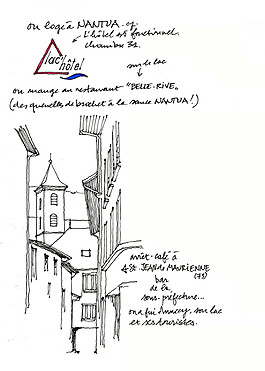 on loge à NANTUA
L'hôtel est fonctionnel.
chambre 31.
lac'hôtel
sur le lac
on mange au restaurant "BELLE-RIVE"
(des quenelles de brochet à la sauce NANTUA!)
arrêt-café à
St JEAN de MAURIENNE
(73)
bar
de la
sous-préfecture...
on a fui Annecy, son lac
et ses touristes.